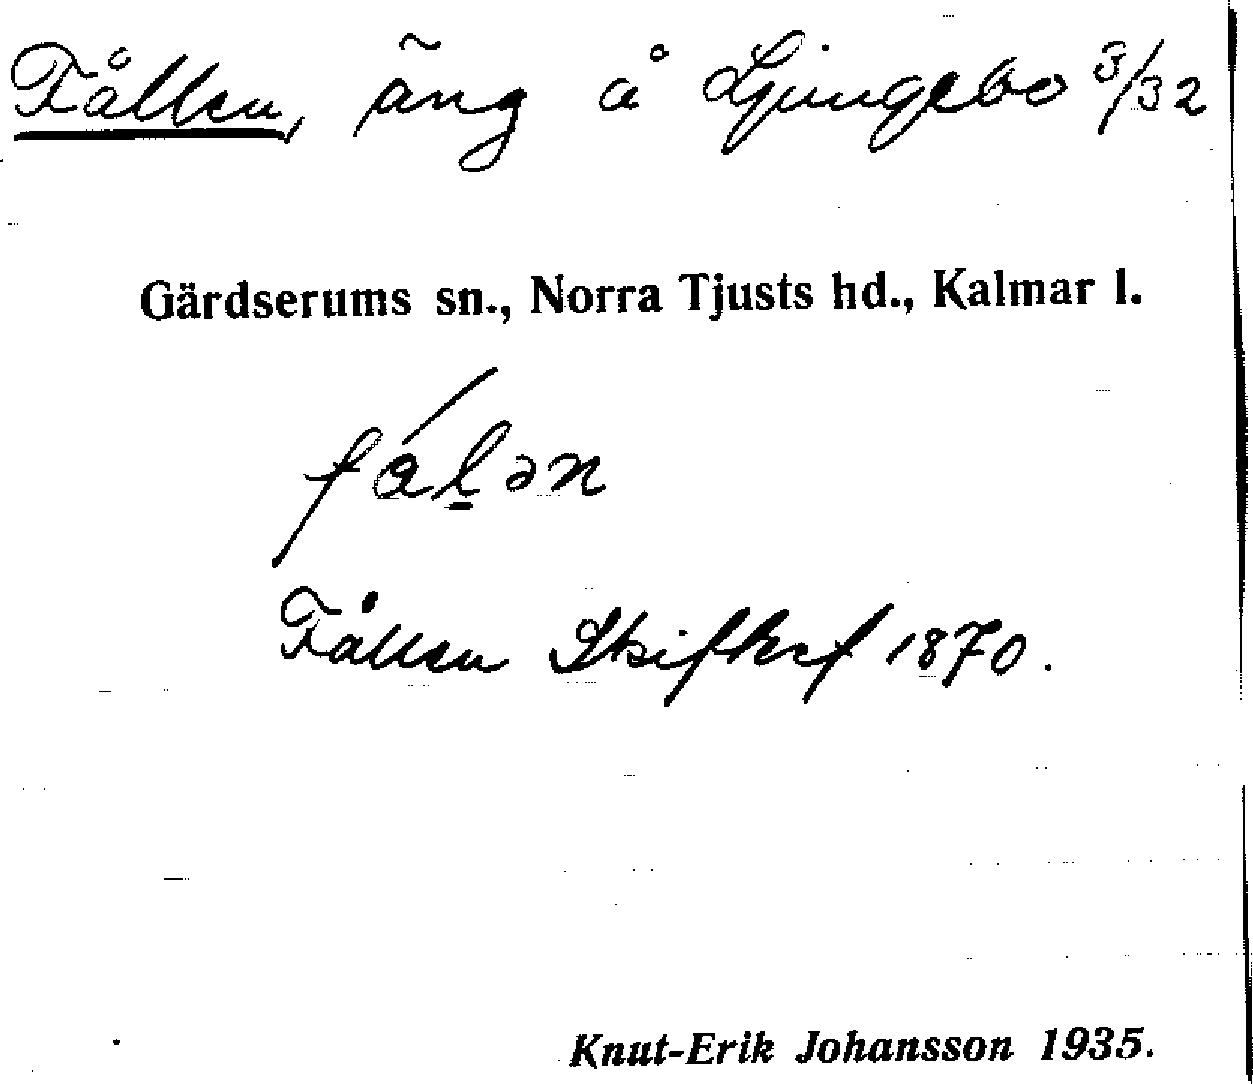 Fållen, äng å Ljungebo 3/32
Gärdserums sn., Norra Tjusts hd., Kalmar l.
fálən
Fållen Skifteskf 1870.
Knut-Erik Johansson 1935.